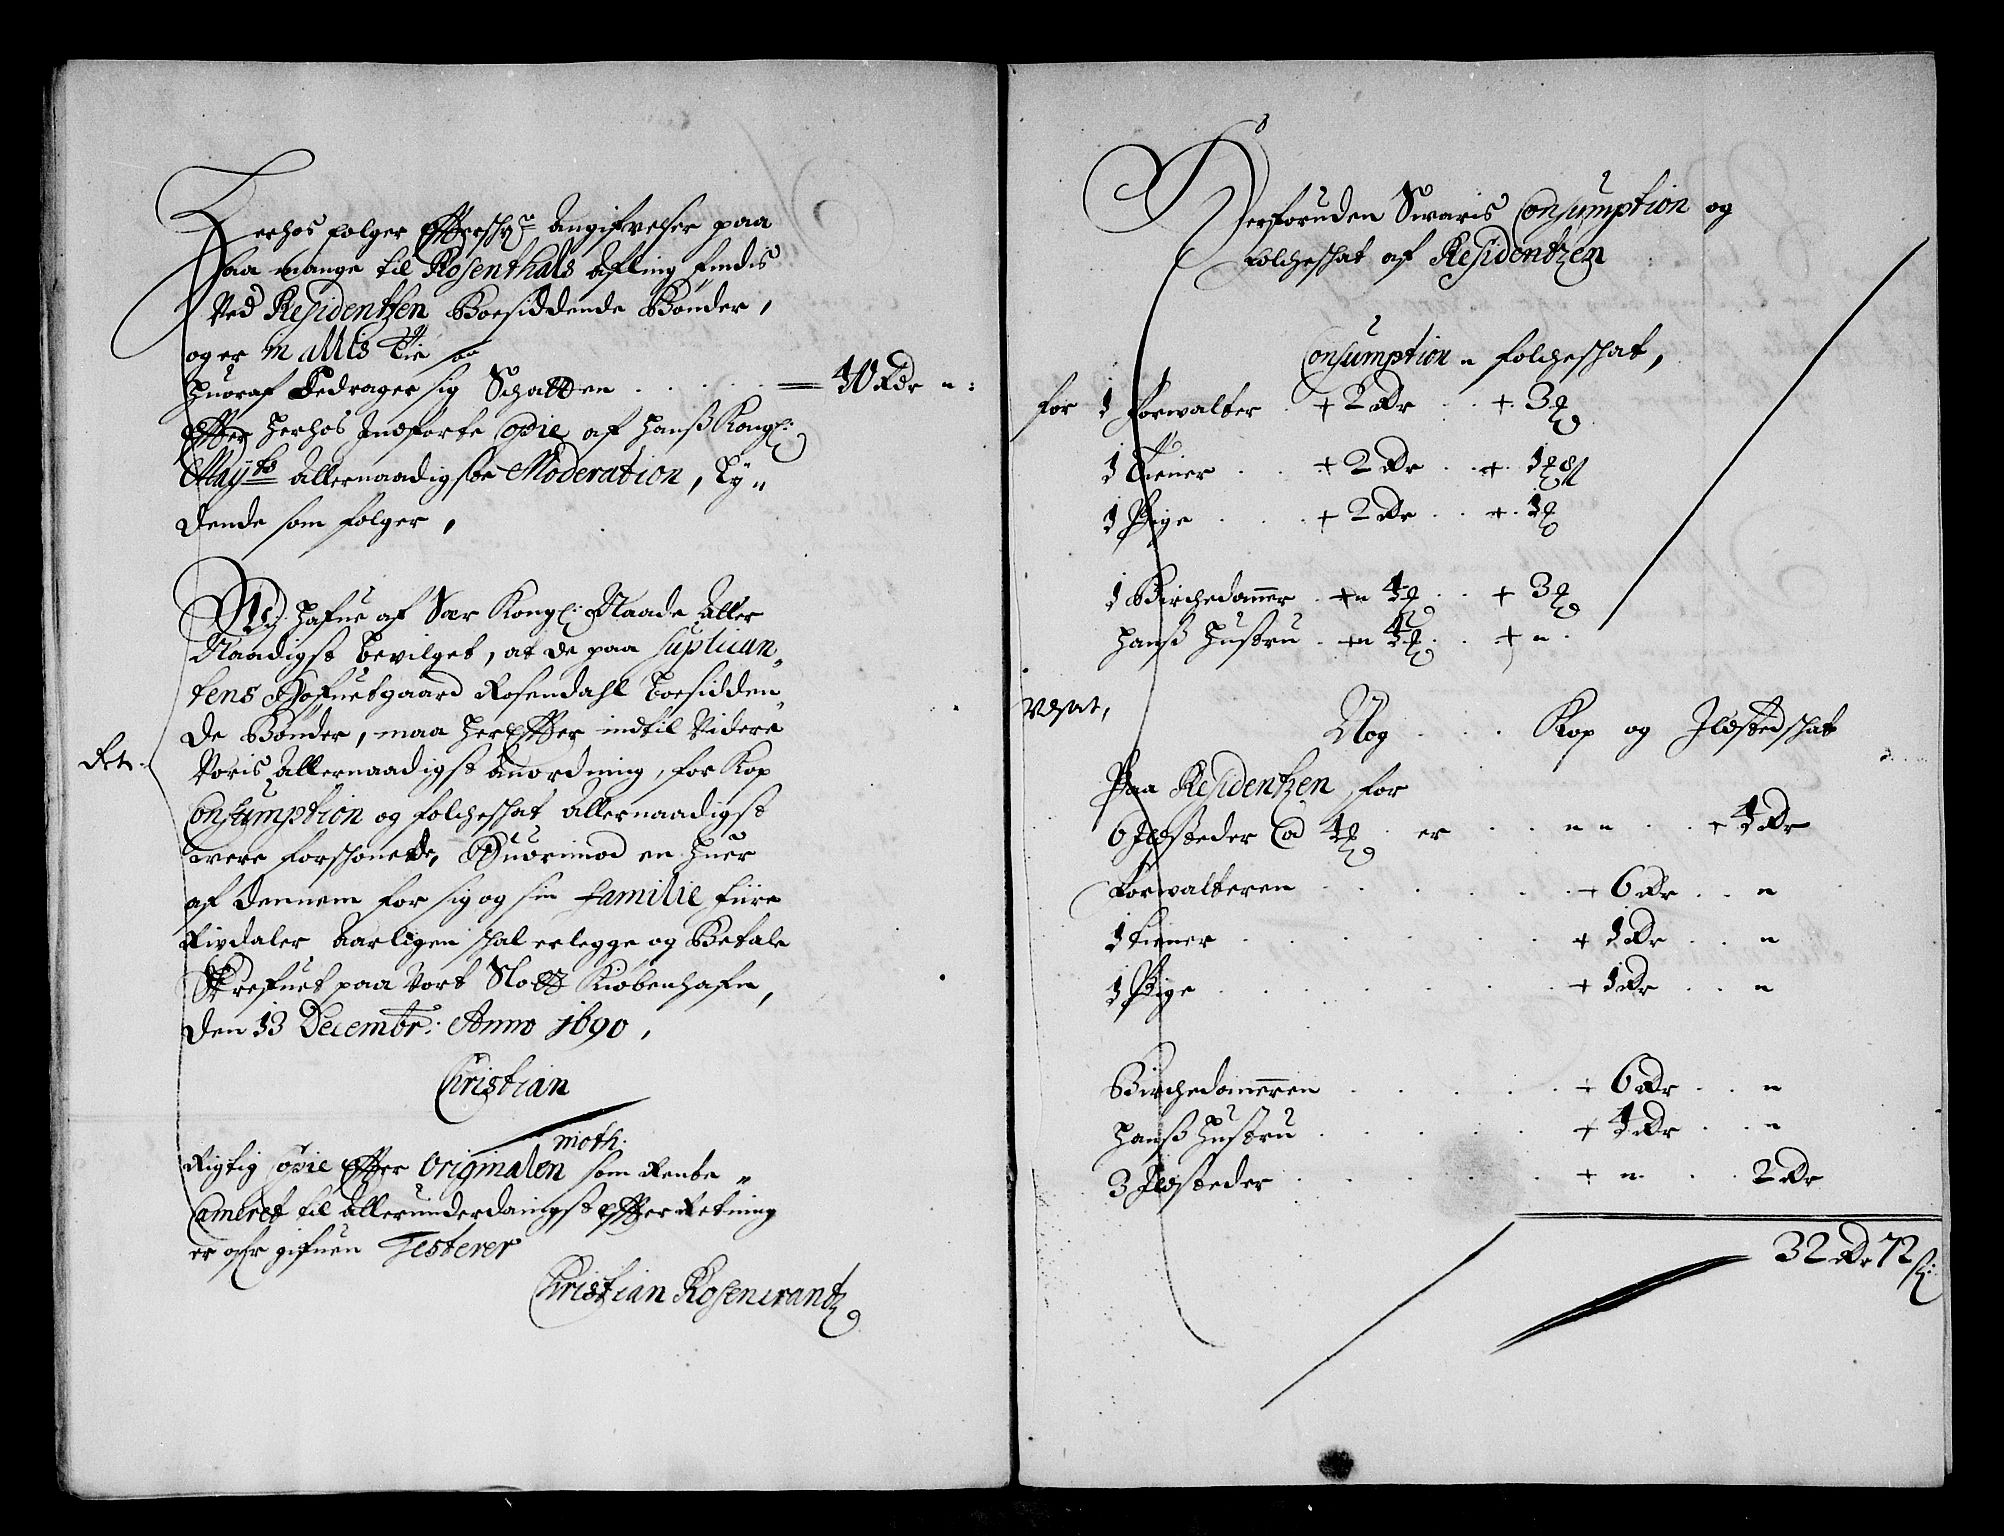 Herhos følger Effterschrne Angifvelser paa
saa mange til Rosenthals Afling findis
Ved Residentzen Boesiddende Bønder,
og er in allis Tie
huoraf bedrager sig Schatten . . . . . = 40 Rdr „:
Effter herhos Indførte Copie af hanß Kongl:
Mayts allernaadigste Moderation, ly„
dende som følger,
Vi hafue af Vor Kongl: Naade Aller
Naadigst bevilget, at de paa Suplican„
tens Hofuetgaard Rosendahl boesidden„
de Bønder, maa herEffter indtil Videre
Voris Allernaadigst Anordning, for Kop
Consumption og folcheschat Allernaadigst
were forschonede, Huorimod en huer
af dennem for sig og sin familie fiire
Rixdaler Aarligen schal erlegge og Betale
Schrefuet paa Vort Slott Kiøbenhafn,
den 13 Decembr: Anno 1690,
Christian
moth.
Rigtig Copie Effter Originalen som Rente„
Cameret til Allerunderdanigst Effter Retning
er gifuen Testerer
Christian Rosencrantz
Derforuden Svaris Consumption og
folcheschat af Residentzen
Consumption „ folcheschat,
for 1 forwalter . + 2 Rdr . . + 3 ꝣ
1 Tiener . . + 2 Rdr . . + 1 ꝣ 8 ß
1 Pige . . . + 2 Rdr . . + 1 ꝣ
1 Birchedommer . +„ 4 ꝣ . . + 3 ꝣ
hanß Hustru . +„ 4 ꝣ . . + „ .
Nog . . . Kop og Ildstedschat
Paa Residentzen for
6 Ildsteder @ 4 ꝣ . er . . „ „ . . + 4 Rdr
Forwalteren . . . . . + 6 Rdr . . „
1 tiener . . . . . + 1 Rdr . . „
1 Pige . . . . . + 1 Rdr . . „
Birchedommeren . . . . + 6 Rdr . . „
hanß Hustru . . . . + 4 Rdr . . „
3 Ildsteder . . . . . + „ . . . 2 Rdr
32 Rdr 72 ß: